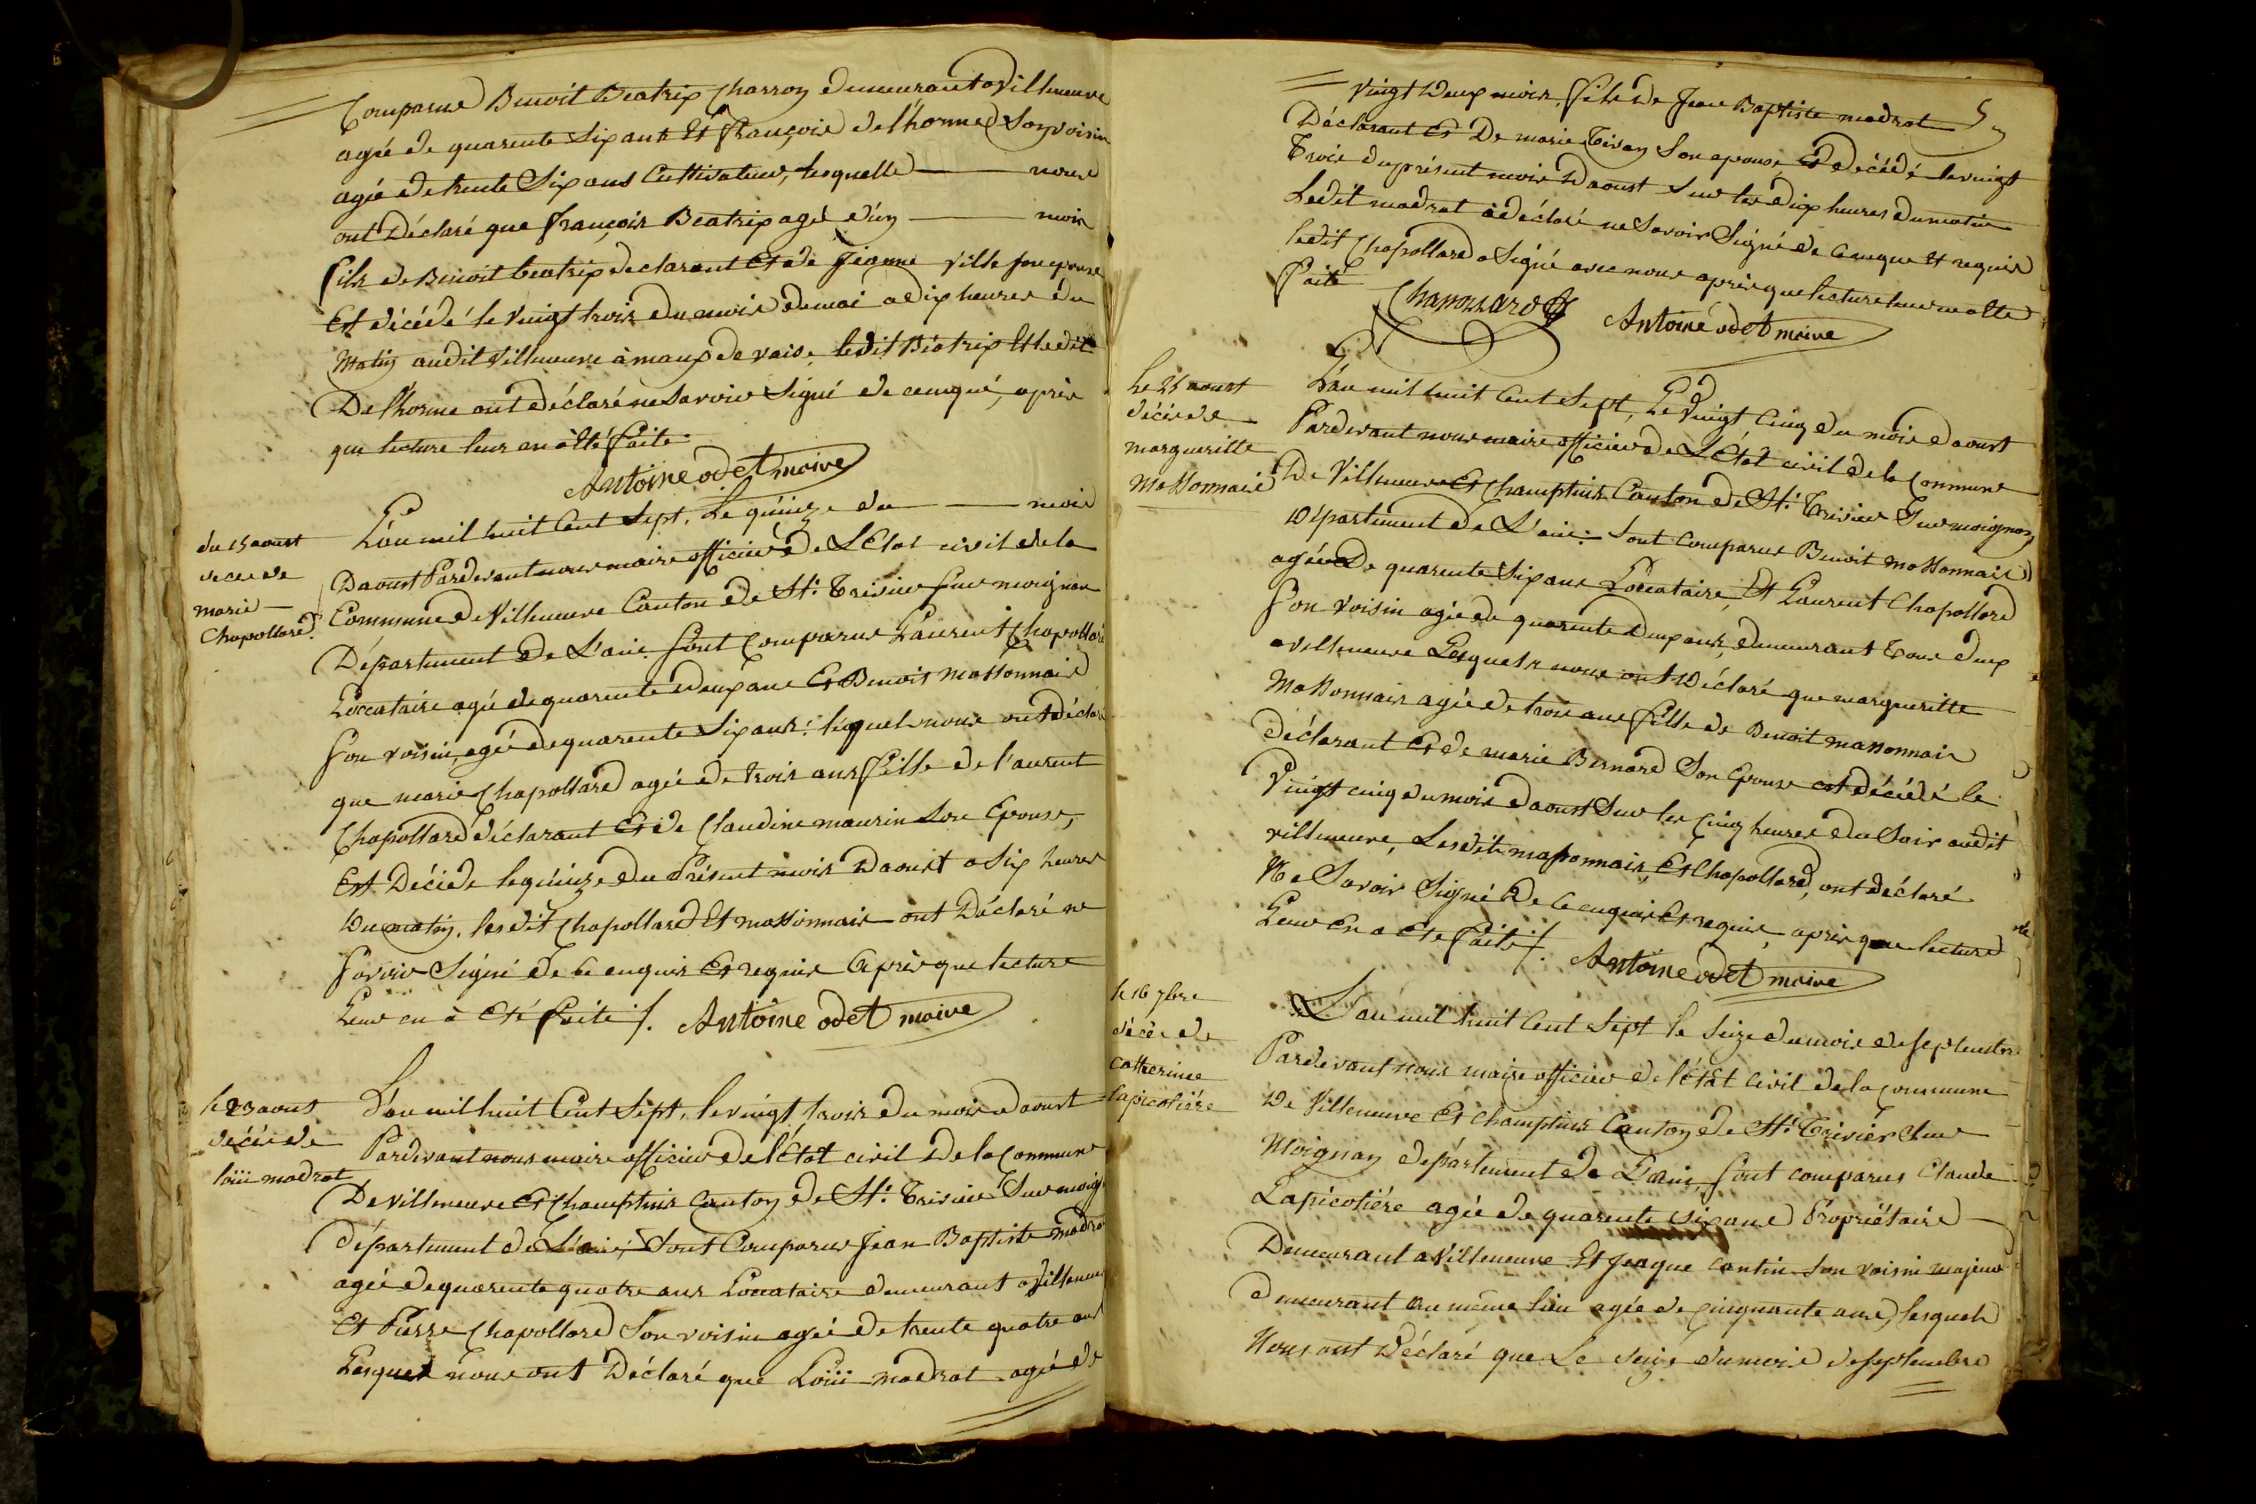 Comparus Benoit Beatrip Charron demeurant a Villeneuve
agée de quarente Six ans Et françois delhorme Son voisin
agée de trente Six ans Cultivateur, lesquelle nous
ont Déclaré que françois Beatrip agé d'un mois
fils de Benoit beatrip declarant Et de Jeanne Ville son epouse
Est décédé le vingt trois du mois de mai a dix heures du
Matin audit Villeneuve ledit Béatrip Et ledit
Delhorme ont déclaré ne Savoir Signé de cenquis, après
que lecture leur en a été faite.
Antoine odet maire
du 15 aoust
deces de
marie
Chapollard
L'an mil huit Cent Sept, Le quinze du mois
Daoust Pardevant nous maire officier de L'Etat civil de la
Commune de Villeneuve Canton de St. Trivier Sur moignan
Département de L'ain Sont Comparus Laurent Chapollard
Loccataire agé de quarente deux ans Et Benoit massonnais
Son voisin, agée de quarente Six ans: lequels nous ont déclaré
que marie Chapollard agée de trois ans fille de Laurent
Chapollard déclarant Et de Claudine maurin Son Epouse,
Est Décéde le quinze du Présent mois Daoust a Six heures
Du matin. lesdit Chapollard Et massonnais ont Déclaré ne
Savoir Signé de Ce enquis Et requis Après que lecture
Leur en à Eté faite /. Antoine odet maire
le 23 aout
décés de
loüi madrat
L'an mil huit Cent Sept, le vingt trois du mois daoust
Pardevant nous maire officier de l'état civil De la Commune
De Villeneuve Et Chamteins Canton de St. Trivier Sur moig
département de L'ain; Sont Comparus Jean Baptiste madra
agée de quarente quatre ans Loccataire demeurant a Villeneuve
Et Pierre Chapollard Son voisin agée de trente quatre ans
Lesquel nous ont Déclaré que Loüi madrat agée de
vingt Deux mois, fils de Jean Baptiste madrat
Déclarant Et De marie Tivan Son epouse, Est décédé le vingt
Trois du présent mois Daoust Sur les dix heures du matin
Ledit madrat à déclaré ne Savoir Signé de cenque Et requis
ledit Chapollard a Signé avec nous après que lecture leur en a été
faite Chapollard Antoine odet maire
Le 25 aoust
décès de
margueritte
Massonnais
L'an mil huit Cent Sept, Le vingt Cinq du mois daoust
Pardevant nous maire officier de L'État civil de la Commune
De Villeneuve Et Chamteins Canton de St. Trivier Sur moignan
Département de L'ain: Sont Comparus Benoit massonnais
agée De quarente Six ans Loccataire, Et Laurent Chapollard
Son voisin agée de quarente deux ans, demeurant tous deux
a Villeneuve Lesquels nous ont Déclaré que margueritte
Massonnais agée de trois ans fille de Benoit massonnais
déclarant Et de marie Bernard Son Epouse est décédé le
Vingt cinq du mois daoust Sur les Cinq heures du Soir audit
villeneuve, Lesdits massonnais, Et Chapollard, ont déclaré
Ne Savoir Signé De Ce enquis Et requis, après que lecture
Leur En a Eté faite /. Antoine odet maire
le 16 7bre
décès de
catherinne
lapicotiére
L'an mil huit Cent Sept le Seize du mois de Septembre
Pardevant nous maire officier de l'état civil de la commune
De Villeneuve Et Chamteins Canton de St. Trivier Sur
Moignan département de L'ain, Sont comparus Claude
Lapicotiére agée de quarente Six ans Propriétaire
Demeurant a Villeneuve Et Jeaque cantin Son voisin majeur
demeurant au même lieu agée de Cinquante ans, lesquels
Nous ont Déclaré que Le Seize du mois de Septembre